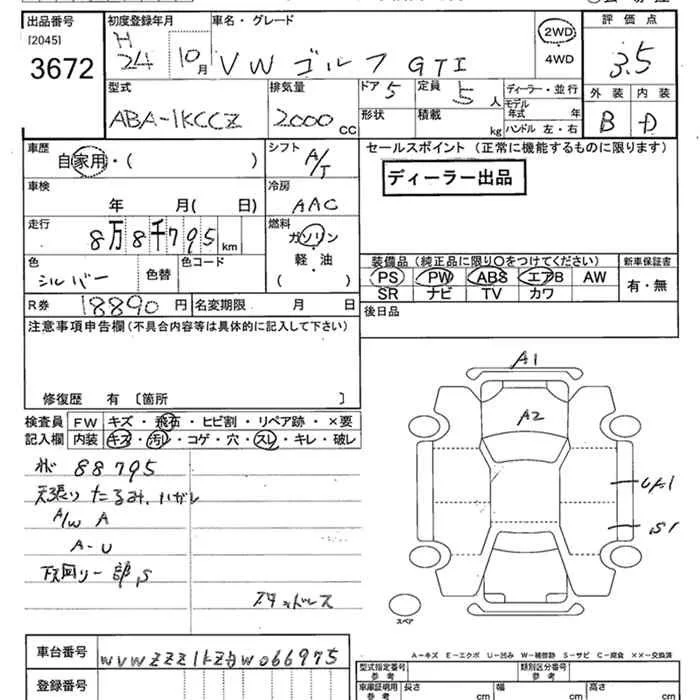 出品番号
[2045]
3672
初度登録年月
H
24 10月
車名・グレード
VW ゴルフ GTI
2WD
・
4WD
評価点
3.5
型式
ABA-1KCCZ
排気量
2000 CC
ドア 5
形状
定員 5 人
積載 kg
ディーラー・並行
モデル年式 年
ハンドル 左・右
外装 内装
B D
車歴
自家用・( )
シフト
A/T
セールスポイント(正常に機能するものに限ります)
ディーラー出品
車検
年 月( 日)
冷房
AAC
走行
8万8千795 km
燃料
ガソリン
・
軽・油
( )
色
シルバー 色替
色コード
装備品(純正品に限り○をつけてください)
PS PW ABS エアB AW
SR ナビ TV カワ
新車保証書
有・無
R券 18890円 名変期限 月 日
後日品
注意事項申告欄(不具合内容等は具体的に記入して下さい)
修復歴 有〔箇所 〕
検査員
記入欄
FW キズ・飛石・ヒビ割・リペア跡・×要
内装 キズ・汚レ・コゲ・穴・スレ・キレ・破レ
88795
天張りたるみ、ハガレ
A/W A
A-U
下回り一部S
スタッドレス
A1
A2
UA1
S1
スペア
A-キズ E-エクボ U-凹み W-補修跡 S-サビ C-腐食 ××-交換済
車台番号
登録番号
型式指定番号
参考
類別区分番号
参考
車庫証明用
参考
長さ cm
幅 cm
高さ cm